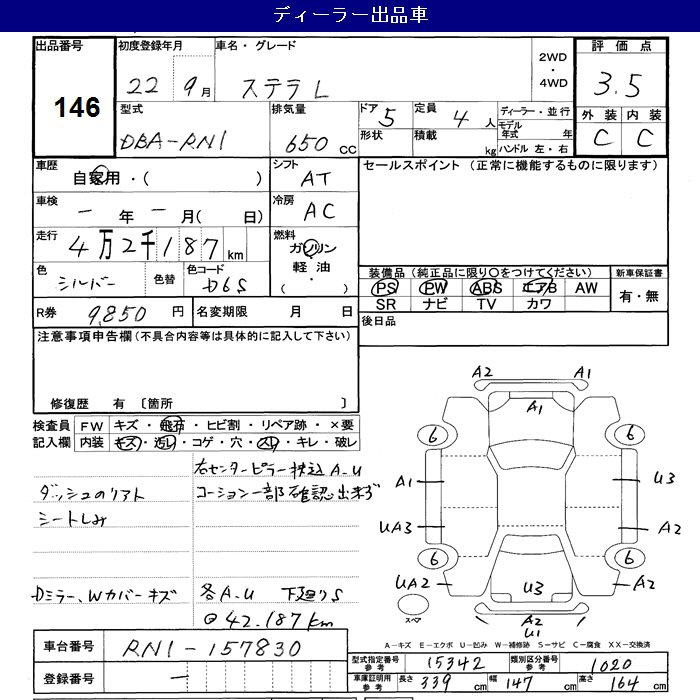 ディーラー出品車
出品番号 146
初度登録年月 22 9月
車名・グレード ステラ L
2WD ・ 4WD
評価点 3.5
外装 C 内装 C
型式 DBA-RN1
排気量 650 cc
ドア 5
形状
定員 4 人
積載 kg
ディーラー・並行
モデル年式 年
ハンドル 左・右
車歴 自家用・( )
シフト AT
セールスポイント (正常に機能するものに限ります)
車検 ー 年 ー 月( 日)
冷房 AC
走行 4万2千187 km
燃料 ガソリン 軽油 ( ・ )
色 シルバー
色替
色コード D6S
装備品(純正品に限り○をつけてください)
新車保証書
PS PW ABS エアB AW
有・無
SR ナビ TV カワ
R券 9,850 円
名変期限 月 日
後日品
注意事項申告欄(不具合内容等は具体的に記入して下さい)
修復歴 有 〔箇所 〕
検査員記入欄
FW キズ・飛石・ヒビ割・リペア跡・×要
内装 キズ・汚れ・コゲ・穴・スレ・キレ・破レ
右センターピラー押込 A-U
ダッシュのリフト
コーション一部確認出来ず
シートしみ
Dミラー、Wカバーキズ
各A-U 下廻りS
42.187km
A2 A1
A1
6 6
A1 U3
UA3 A2
6 6
UA2 U3 A2
スペア
A2
U1
車台番号 RN1-157830
登録番号 ー
A-キズ E-エクボ U-凹み W-補修跡 S-サビ C-腐食 XX-交換済
型式指定番号 参考 15342
類別区分番号 参考 1020
車庫証明用 参考 長さ 339 cm 幅 147 cm 高さ 164 cm